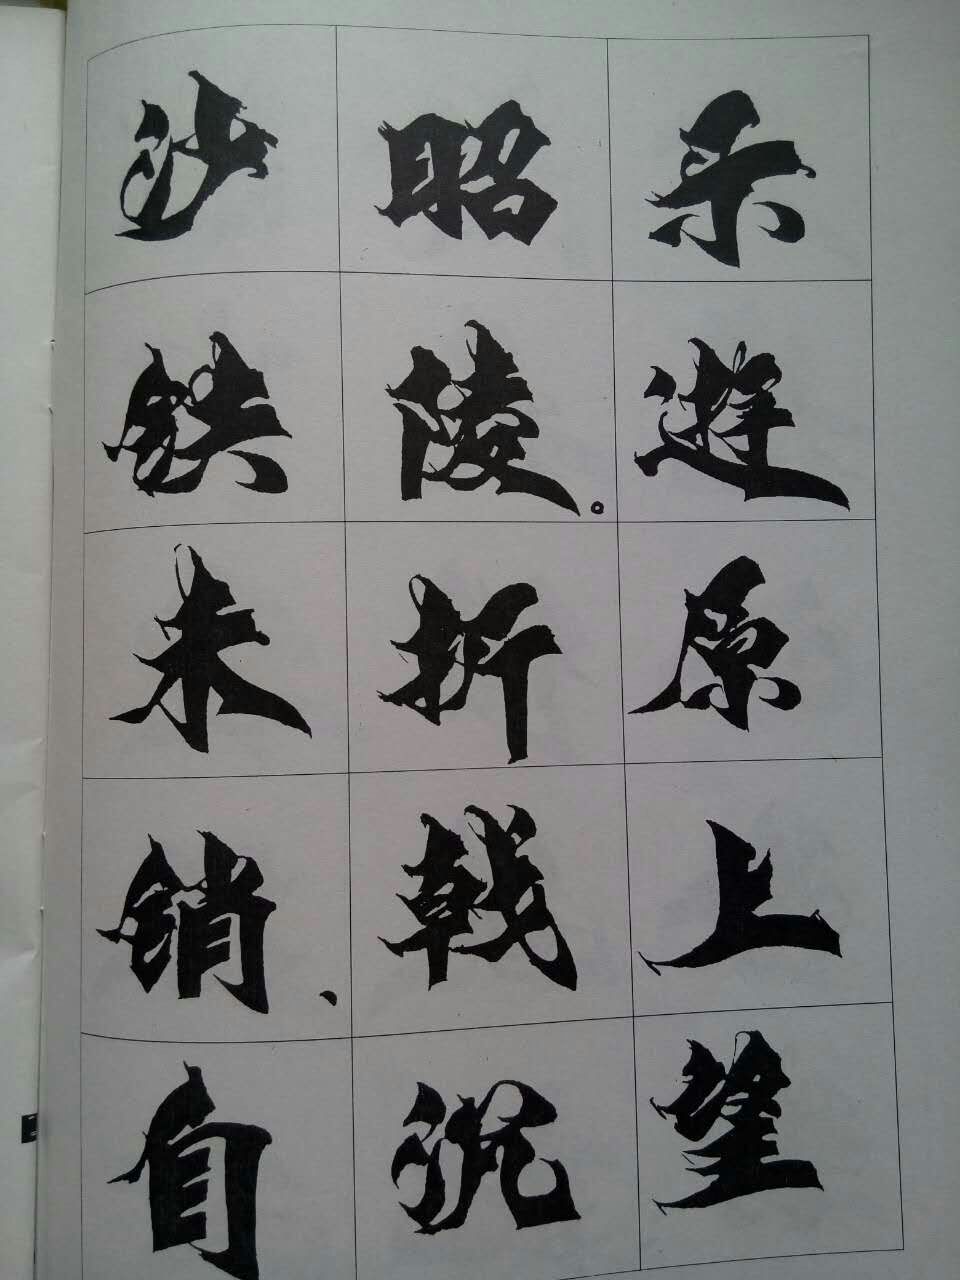 乐遊原上望
昭陵。折戟沉
沙铁未销、自